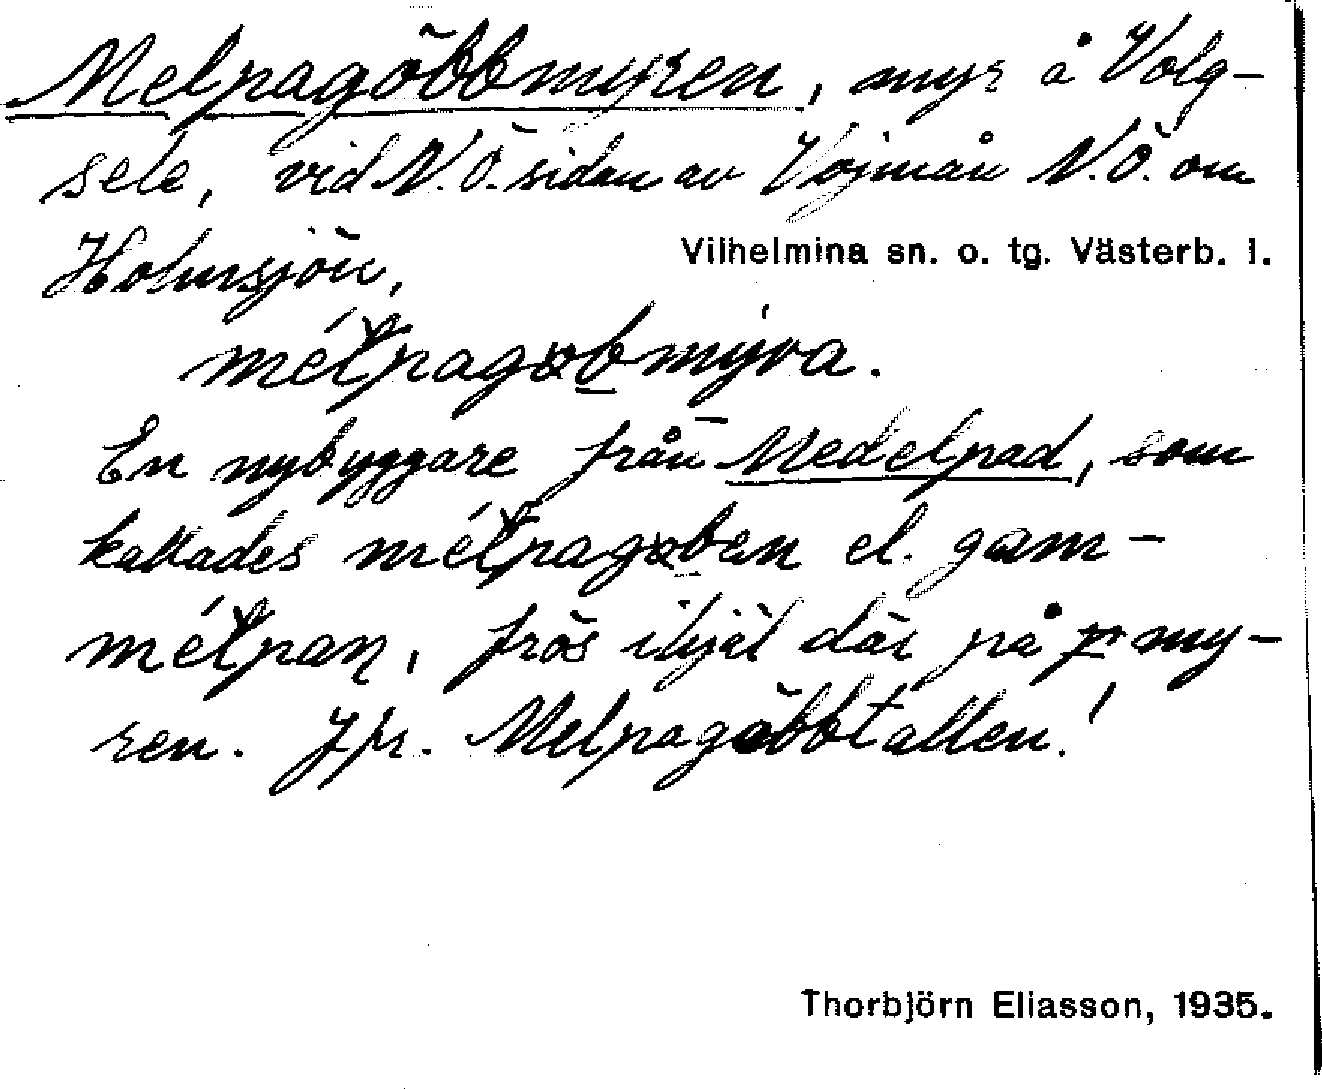 Melpagöbbmyren, myr å Volg-
sele, vid N.Ö. sidan av Vojmån N.Ö. om
Holmsjön.
Vilhelmina sn. o. tg. Västerb. l.
mélpagɷbmýra.
En nybyggare från Medelpad, som
kallades mélpagɷben el. gam-
mélpaṇ, frös ihjäl där på my-
ren. Jfr. Melpagöbbtallen!
Thorbjörn Eliasson, 1935.